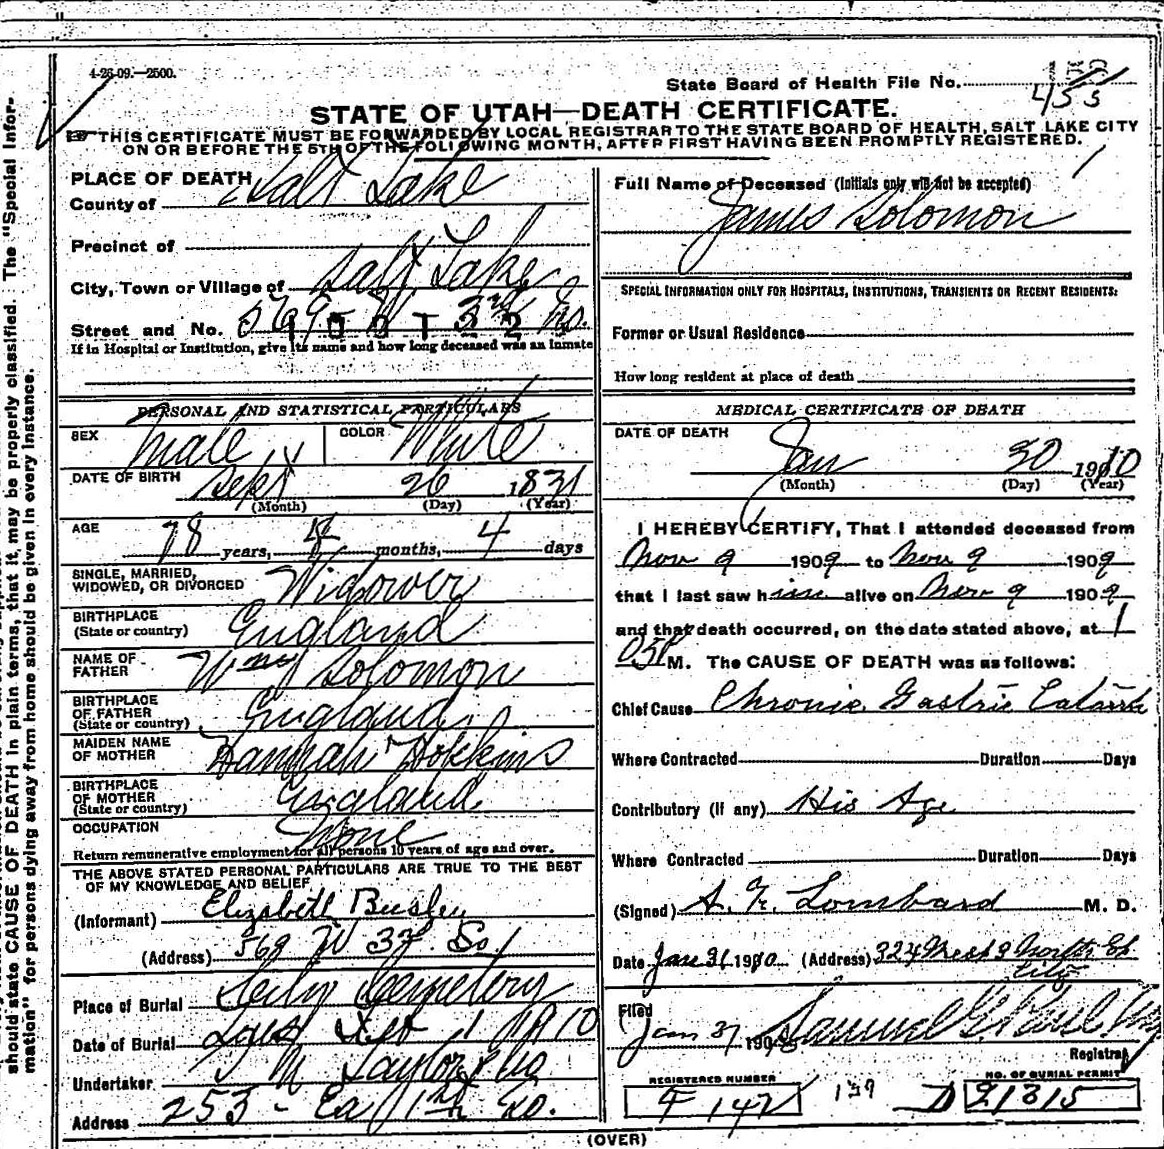 4-26-09.—2500.
State Board of Health File No. 455
STATE OF UTAH—DEATH CERTIFICATE.
THIS CERTIFICATE MUST BE FORWARDED BY LOCAL REGISTRAR TO THE STATE BOARD OF HEALTH, SALT LAKE CITY
ON OR BEFORE THE 5TH OF THE FOLLOWING MONTH, AFTER FIRST HAVING BEEN PROMPTLY REGISTERED.
PLACE OF DEATH
County of Salt Lake
Precinct of
City, Town or Village of Salt Lake
Street and No. 569 W 3rd So.
If in Hospital or Institution, give its name and how long deceased was an inmate
PERSONAL AND STATISTICAL PARTICULARS
SEX Male COLOR White
DATE OF BIRTH Sept 26 1831
(Month) (Day) (Year)
AGE 78 years, 4 months, 4 days
SINGLE, MARRIED,
WIDOWED, OR DIVORCED Widower
BIRTHPLACE
(State or country) England
NAME OF
FATHER Wm Solomon
BIRTHPLACE
OF FATHER
(State or country) England
MAIDEN NAME
OF MOTHER Hannah Hopkins
BIRTHPLACE
OF MOTHER
(State or country) England
OCCUPATION None
Return remunerative employment for all persons 10 years of age and over.
THE ABOVE STATED PERSONAL PARTICULARS ARE TRUE TO THE BEST
OF MY KNOWLEDGE AND BELIEF
(Informant) Elizabeth
(Address) 569 W 3rd So.
Place of Burial City Cemetery
Date of Burial 1 1910
Undertaker Taylor & Co
Address 253 - Ea 1st So.
Full Name of Deceased (Initials only will not be accepted)
James Solomon
SPECIAL INFORMATION ONLY FOR HOSPITALS, INSTITUTIONS, TRANSIENTS OR RECENT RESIDENTS:
Former or Usual Residence
How long resident at place of death
MEDICAL CERTIFICATE OF DEATH
DATE OF DEATH
Jan 30 1910
(Month) (Day) (Year)
I HEREBY CERTIFY, That I attended deceased from
Nov 9 1909 to Nov 9 1909
that I last saw him alive on Nov 9 1909
and that death occurred, on the date stated above, at 1
M. The CAUSE OF DEATH was as follows:
Chief Cause Chronic Gastric Catarrh
Where Contracted Duration Days
Contributory (if any) His Age
Where Contracted Duration Days
(Signed) A. F. Lombard M. D.
Date Jan 31 1910 (Address) 324 West 3 North St
City
Filed
Jan 31 190 Samuel G. Paul
Registrar
REGISTERED NUMBER
F 142
139
NO. OF BURIAL PERMIT
D 21315
(OVER)
should state CAUSE OF DEATH in plain terms, that it may be properly classified. The "Special Infor-
mation" for persons dying away from home should be given in every instance.